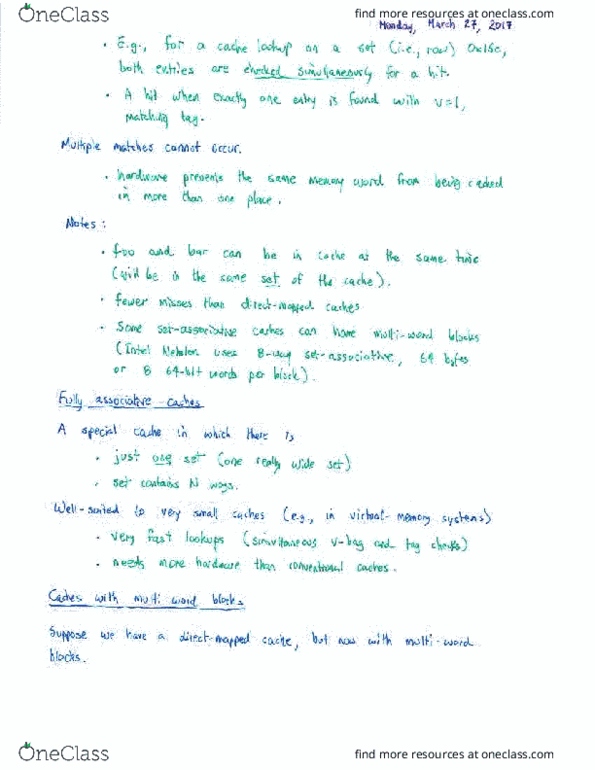 OneClass
find more resources at oneclass.com
Monday, March 27, 2017
• E.g., for a cache lookup on a set (i.e., row) 0x15c,
both entries are checked simultaneously for a hit.
• A hit when exactly one entry is found with v=1,
matching tag.
Multiple matches cannot occur.
• hardware prevents the same memory word from being cached
in more than one place.
Notes:
• foo and bar can be in cache at the same time
(will be in the same set of the cache).
• fewer misses than direct-mapped caches
• Some set-associative caches can have multi-word blocks
(Intel uses 8-way set-associative, 64 bytes
or 8 64-bit words per block).
Fully associative caches
A special cache in which there is
• just one set (one really wide set)
• set contains N ways.
Well-suited to very small caches (e.g., in virtual-memory systems)
• very fast lookups (simultaneous v-bag and tag checks)
• needs more hardware than conventional caches.
Caches with multi word blocks
Suppose we have a direct-mapped cache, but now with multi-word
blocks.
OneClass
find more resources at oneclass.com